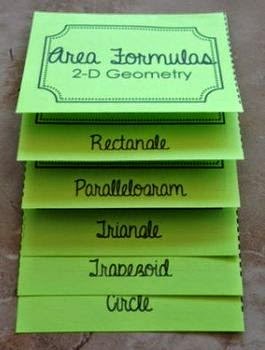 Area Formulas
2-D Geometry
Rectangle
Parallelogram
Triangle
Trapezoid
Circle